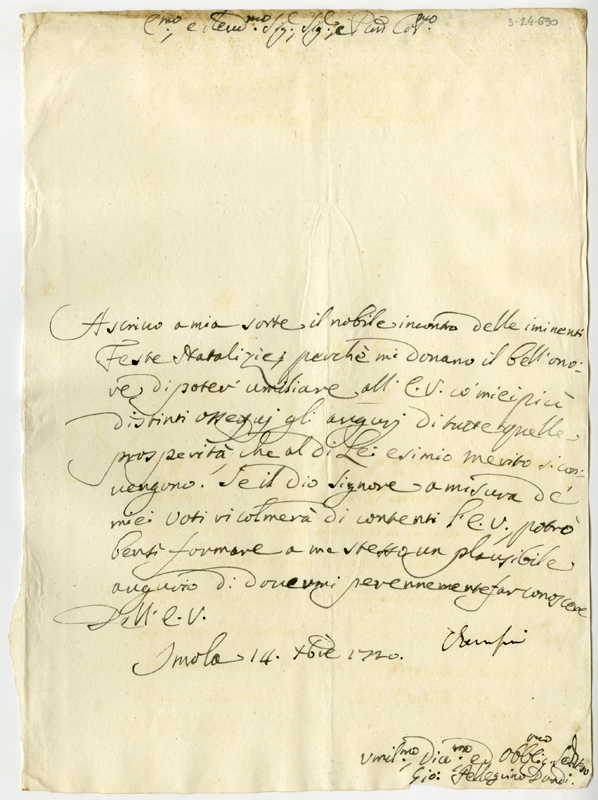 3-24-690
E.mo, e Rev.mo Sig.r, Sig.r, e P.ron Col.mo
Ascrivo a mia sorte il nobile incontro delle iminenti
Feste Natalizie; perchè mi donano il bell'ono-
re di poter umiliare all' E.V. co' miei più
distinti ossequj gli augurj di tutte quelle
prosperità, che al di Lei esimio merito si con-
vengono. Se il dio Signore a misura de'
miei voti ricolmerà di contenti l' E.V., potrò
bensì formare a me stesso un plausibile
augurio di dovermi perennemente far conoscere
Dell' E.V.
Imola 14. Xbre 1720.
Umil.mo, Div.mo ed Obblig.mo
Gio: Pellegrino Dandi.